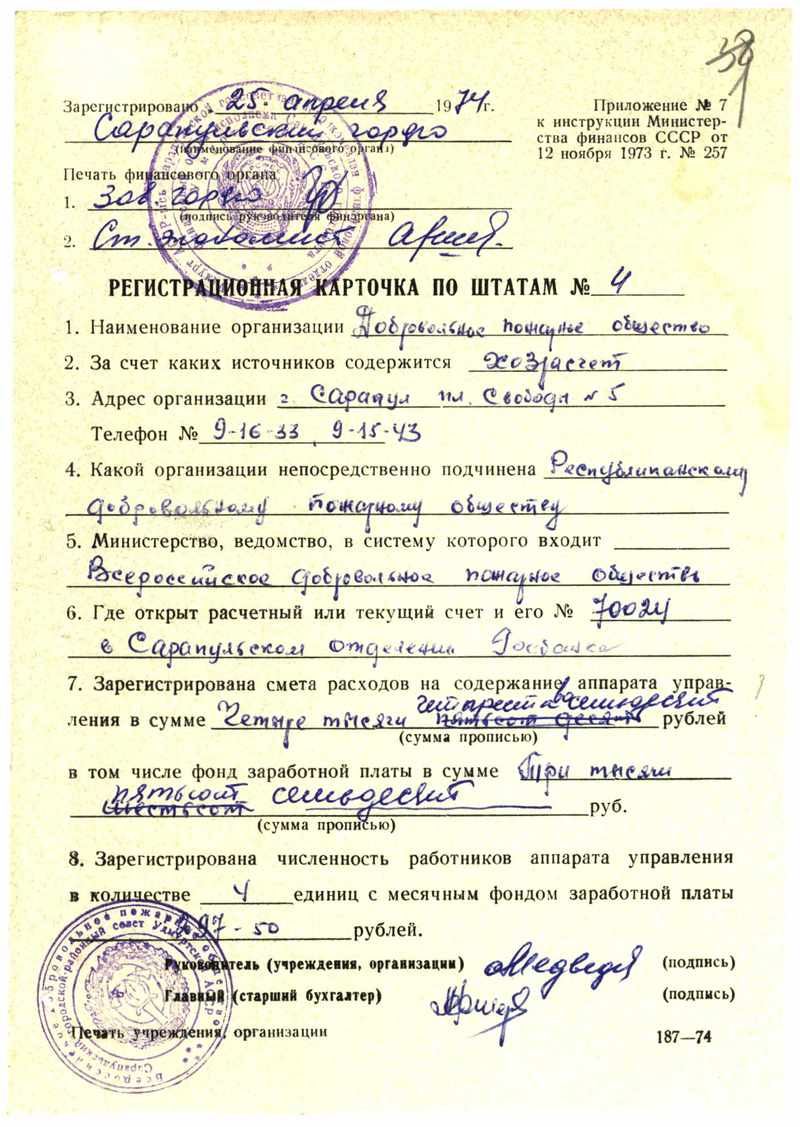 39
Зарегистрировано 25 апреля 1974г.
Сарапульский горфо
(наименование финансового органа)
Приложение № 7
к инструкции Министер-
ства финансов СССР от
12 ноября 1973 г. № 257
Печать финансового органа
1. Зав. горфо
(подпись руководителя финоргана)
2. Ст. экономист
РЕГИСТРАЦИОННАЯ КАРТОЧКА ПО ШТАТАМ № 4
1. Наименование организации Добровольное пожарное общество
2. За счет каких источников содержится хозрасчет
3. Адрес организации г. Сарапул пл. Свободы № 5
Телефон № 9-16-33, 9-15-43
4. Какой организации непосредственно подчинена Республиканскому
добровольному пожарному обществу
5. Министерство, ведомство, в систему которого входит
Всероссийское добровольное пожарное общество
6. Где открыт расчетный или текущий счет и его № 70024
в Сарапульском отделении Госбанка
7. Зарегистрирована смета расходов на содержание аппарата управ-
четыреста восемьдесят
ления в сумме Четыре тысячи пятьсот десять рублей
(сумма прописью)
в том числе фонд заработной платы в сумме Три тысячи
пятьсот семьдесят
шестьсот руб.
(сумма прописью)
8. Зарегистрирована численность работников аппарата управления
в количестве 4 единиц с месячным фондом заработной платы
297-50 рублей.
Руководитель (учреждения, организации) Медведев (подпись)
Главный (старший бухгалтер) (подпись)
Печать учреждения, организации
187—74